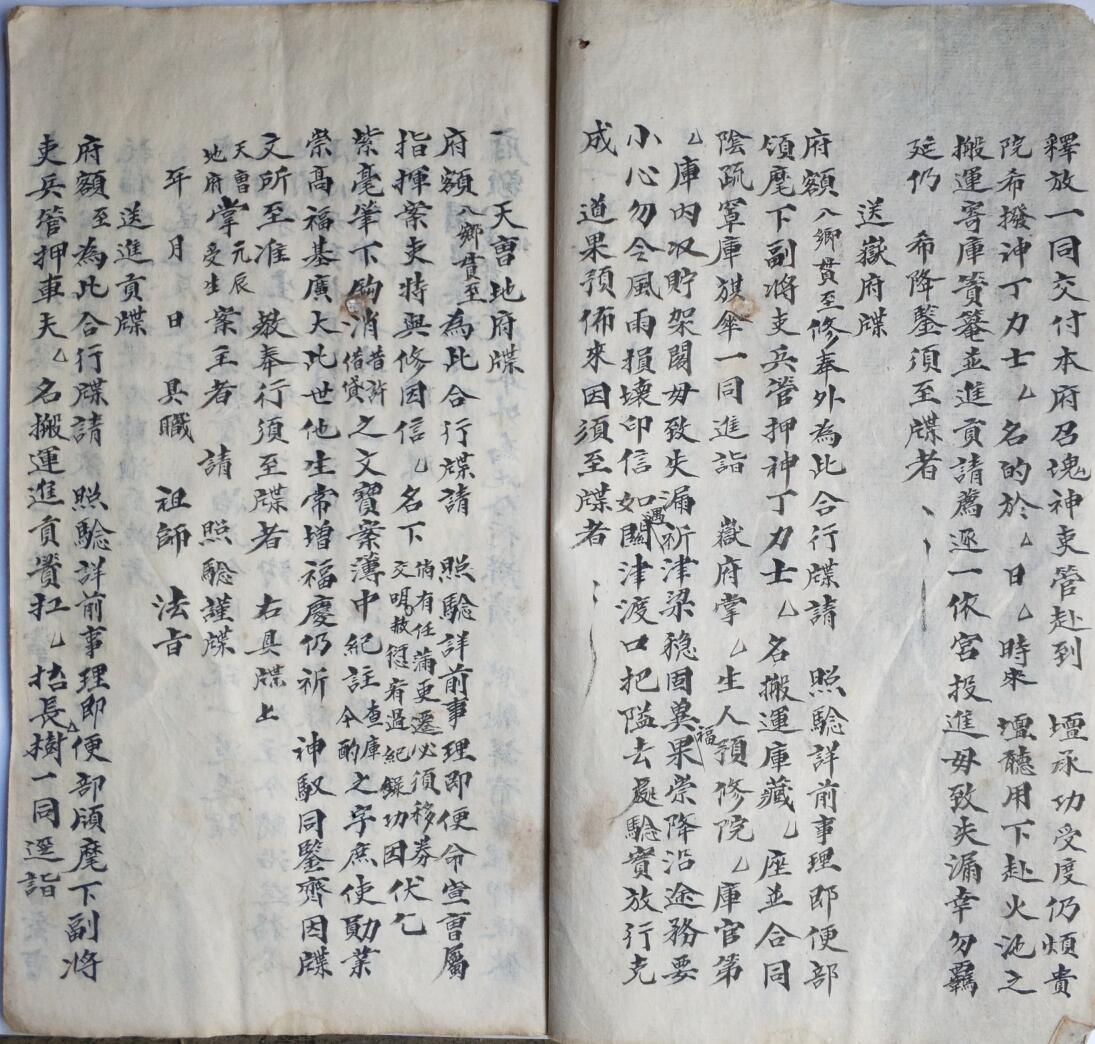 釋放一同交付本府召魂神吏管赴到　壇承功受度仍煩貴
院希撥神丁力士乙名的於乙日乙時來　壇聽用下赴火池之
搬運寄庫簣篭並進貢請薦逐一依宮投進毋致失漏幸勿羈
延仍　希降鑒須至牒者
送嶽府牒
府額入鄉貫至修奉外為此合行牒請　照驗詳前事理即便部
領麾下副將吏兵管押神丁力士乙名搬運庫藏乙座並合同
陰疏箪庫旗傘一同進詣　嶽府掌乙生人預修院乙庫官第
乙庫內収貯架閣毋致失漏所津梁穩固異果福崇降沿途務要
小心勿令風雨損壞印信如遇關津渡口把隘去處驗實放行克
成　道果預佈來因須至牒者
一　天曹地府牒
府額入鄉貫至為此合行牒請　照驗詳前事理即便命宣曹屬
指揮案吏特與修因信乙名下倘有任蒲更遷必須移券交明赦愆宥過紀錄功因伏乞
紫毫筆下鈎消昔許借貸之文寶案薄中紀註查庫今酌之字庶使勛業
崇高福基廣大此世他生常增福慶仍祈　神馭同鑒齊因牒
文所至准教奉行須至牒者　右具牒上
天曹地府掌元辰受生案主者　請　照驗謹牒
年　月　日　具職　祖師　法旨
送進貢牒
府額至為此合行牒請　照驗詳前事理即便部領麾下副將
吏兵管押車夫乙名搬運進貢賞扛乙捂長樹一同逕詣